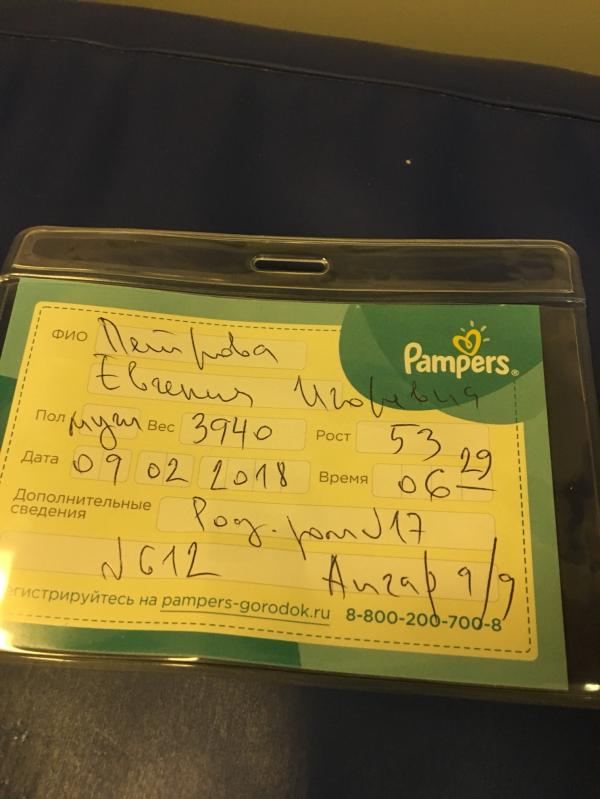 ФИО Петрова
Pampers®
Евгения Игоревна
Пол муж Вес 3940 Рост 53
Дата 09 02 2018 Время 06 29
Дополнительные сведения Род. дом №17
№612 Апгар 9/9
егистрируйтесь на pampers-gorodok.ru 8-800-200-700-8